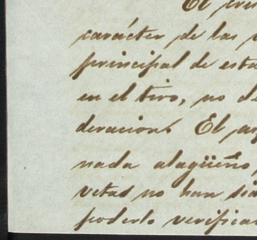 El
carácter de las
principal de esta
en el tiro, no de
deracion. El
nada alagüeño,
vetas no han
poderlo verificar